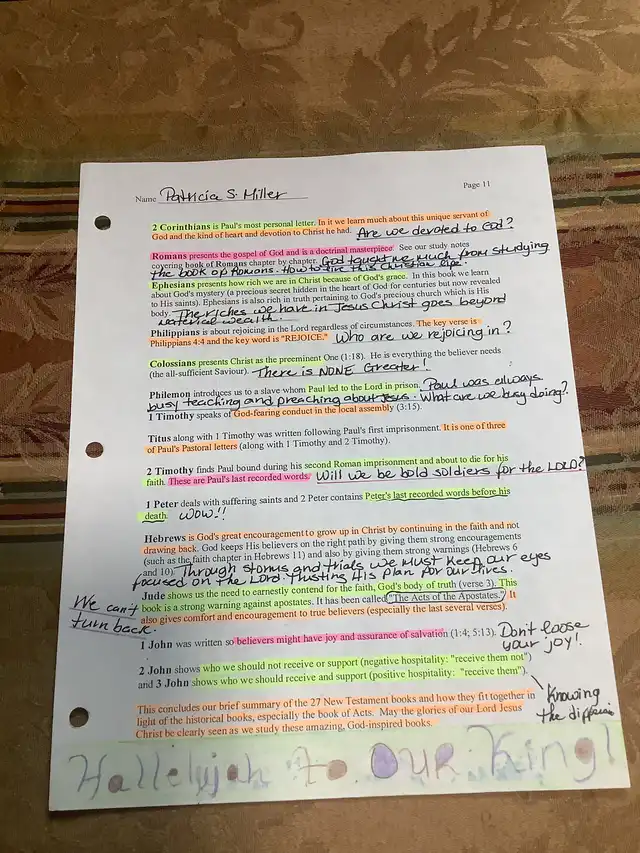 Name Patricia S. Miller
Page 11
2 Corinthians is Paul's most personal letter. In it we learn much about this unique servant of
God and the kind of heart and devotion to Christ he had. Are we devoted to God?
Romans presents the gospel of God and is a doctrinal masterpiece. See our study notes
covering book of Romans chapter by chapter. God taught me much from studying
the book of Romans. How to live this Christian life.
Ephesians presents how rich we are in Christ because of God's grace. In this book we learn
about God's mystery (a precious secret hidden in the heart of God for centuries but now revealed
to His saints). Ephesians is also rich in truth pertaining to God's precious church which is His
body. The riches we have in Jesus Christ goes beyond
material wealth.
Philippians is about rejoicing in the Lord regardless of circumstances. The key verse is
Philippians 4:4 and the key word is "REJOICE." Who are we rejoicing in?
Colossians presents Christ as the preeminent One (1:18). He is everything the believer needs
(the all-sufficient Saviour). There is NONE Greater!
Philemon introduces us to a slave whom Paul led to the Lord in prison. Paul was always
busy teaching and preaching about Jesus. What are we busy doing?
1 Timothy speaks of God-fearing conduct in the local assembly (3:15).
Titus along with 1 Timothy was written following Paul's first imprisonment. It is one of three
of Paul's Pastoral letters (along with 1 Timothy and 2 Timothy).
2 Timothy finds Paul bound during his second Roman imprisonment and about to die for his
faith. These are Paul's last recorded words. Will we be bold soldiers for the LORD?
1 Peter deals with suffering saints and 2 Peter contains Peter's last recorded words before his
death. WOW!!
Hebrews is God's great encouragement to grow up in Christ by continuing in the faith and not
drawing back. God keeps His believers on the right path by giving them strong encouragements
(such as the faith chapter in Hebrews 11) and also by giving them strong warnings (Hebrews 6
and 10). Through storms and trials we must keep our eyes
focused on the Lord trusting His plan for our lives.
Jude shows us the need to earnestly contend for the faith, God's body of truth (verse 3). This
book is a strong warning against apostates. It has been called "The Acts of the Apostates." It
also gives comfort and encouragement to true believers (especially the last several verses).
We can't
turn back.
1 John was written so believers might have joy and assurance of salvation (1:4; 5:13). Don't loose
your joy!
2 John shows who we should not receive or support (negative hospitality: "receive them not")
and 3 John shows who we should receive and support (positive hospitality: "receive them").
Knowing
the
This concludes our brief summary of the 27 New Testament books and how they fit together in
light of the historical books, especially the book of Acts. May the glories of our Lord Jesus
Christ be clearly seen as we study these amazing, God-inspired books.
Hallelujah to Our King!